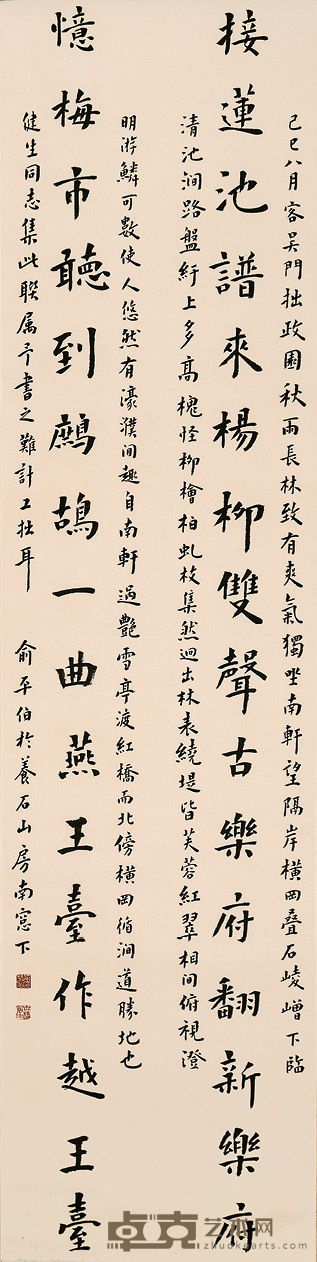 己巳八月客吴門拙政園秋雨長林致有爽氣獨坐南軒望隔岸橫岡叠石崚嶒下臨
接蓮池譜來楊柳雙聲古樂府翻新樂府
清池澗路盤紆上多高槐怪柳檜柏虬枝集然迥出林表繞堤皆芙蓉紅翠相間俯視澄
明游鱗可數使人悠然有濠濮間趣自南軒過艷雪亭渡紅橋而北傍橫岡循澗道勝地也
憶梅市聽到鷓鴣一曲燕王臺作越王臺
健生同志集此聯属予書之難計工拙耳 俞平伯於養石山房南窓下
卓克艺术网
zhuokearts.com